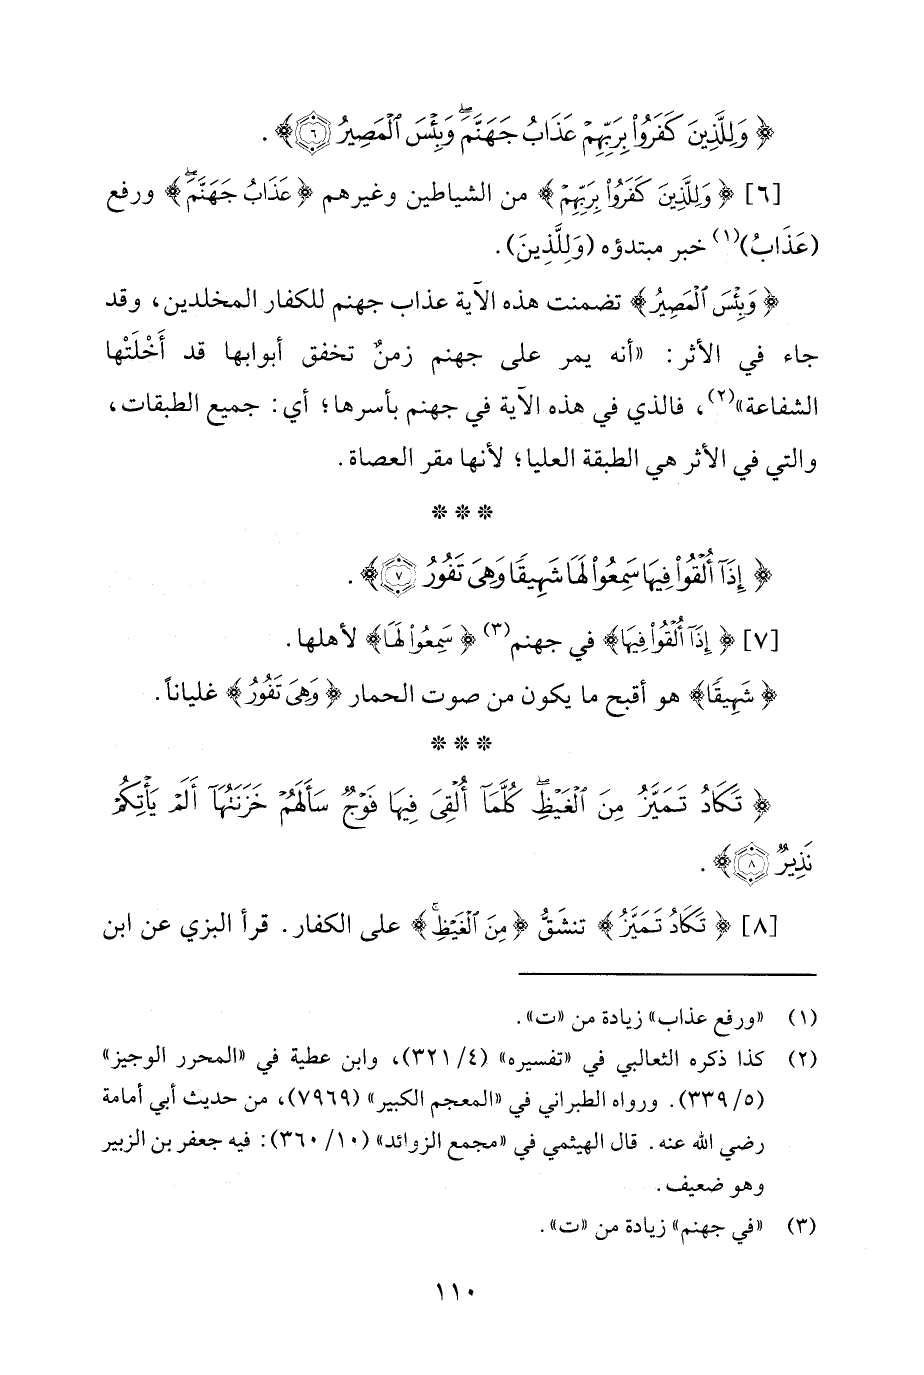 ﴿ وَلِلَّذِينَ كَفَرُوا۟ بِرَبِّهِمْ عَذَابُ جَهَنَّمَ ۖ وَبِئْسَ ٱلْمَصِيرُ ٦ ﴾ .
[٦] ﴿ وَلِلَّذِينَ كَفَرُوا۟ بِرَبِّهِمْ ﴾ من الشياطين وغيرهم ﴿ عَذَابُ جَهَنَّمَ ۖ ﴾ ورفع
(عَذَابُ)(١) خبر مبتدؤه (وَلِلَّذِينَ).
﴿ وَبِئْسَ ٱلْمَصِيرُ ﴾ تضمنت هذه الآية عذاب جهنم للكفار المخلدين، وقد
جاء في الأثر: «أنه يمر على جهنم زمنٌ تخفق أبوابها قد أَخْلَتْها
الشفاعة»(٢)، فالذي في هذه الآية في جهنم بأسرها؛ أي: جميع الطبقات،
والتي في الأثر هي الطبقة العليا؛ لأنها مقر العصاة.
* * *
﴿ إِذَآ أُلْقُوا۟ فِيهَا سَمِعُوا۟ لَهَا شَهِيقًا وَهِىَ تَفُورُ ٧ ﴾ .
[٧] ﴿ إِذَآ أُلْقُوا۟ فِيهَا ﴾ في جهنم(٣) ﴿ سَمِعُوا۟ لَهَا ﴾ لأهلها.
﴿ شَهِيقًا ﴾ هو أقبح ما يكون من صوت الحمار ﴿ وَهِىَ تَفُورُ ﴾ غلياناً.
* * *
﴿ تَكَادُ تَمَيَّزُ مِنَ ٱلْغَيْظِ ۖ كُلَّمَآ أُلْقِىَ فِيهَا فَوْجٌ سَأَلَهُمْ خَزَنَتُهَآ أَلَمْ يَأْتِكُمْ
نَذِيرٌ ٨ ﴾ .
[٨] ﴿ تَكَادُ تَمَيَّزُ ﴾ تنشقُّ ﴿ مِنَ ٱلْغَيْظِ ۚ ﴾ على الكفار. قرأ البزي عن ابن
(١) «ورفع عذاب» زيادة من «ت».
(٢) كذا ذكره الثعالبي في «تفسيره» (٤/ ٣٢١)، وابن عطية في «المحرر الوجيز»
(٥/ ٣٣٩). ورواه الطبراني في «المعجم الكبير» (٧٩٦٩)، من حديث أبي أمامة
رضي الله عنه. قال الهيثمي في «مجمع الزوائد» (١٠/ ٣٦٠): فيه جعفر بن الزبير
وهو ضعيف.
(٣) «في جهنم» زيادة من «ت».
١١٠